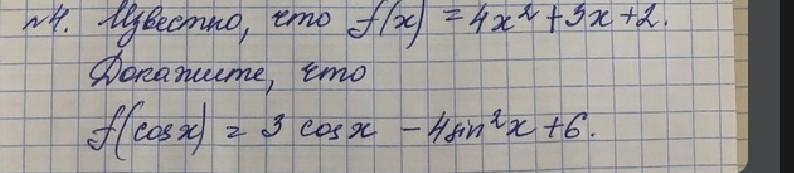 №4. Известно, что f(x) = 4x² + 3x + 2.
Докажите, что
f(cosx) = 3 cosx - 4sin²x + 6.